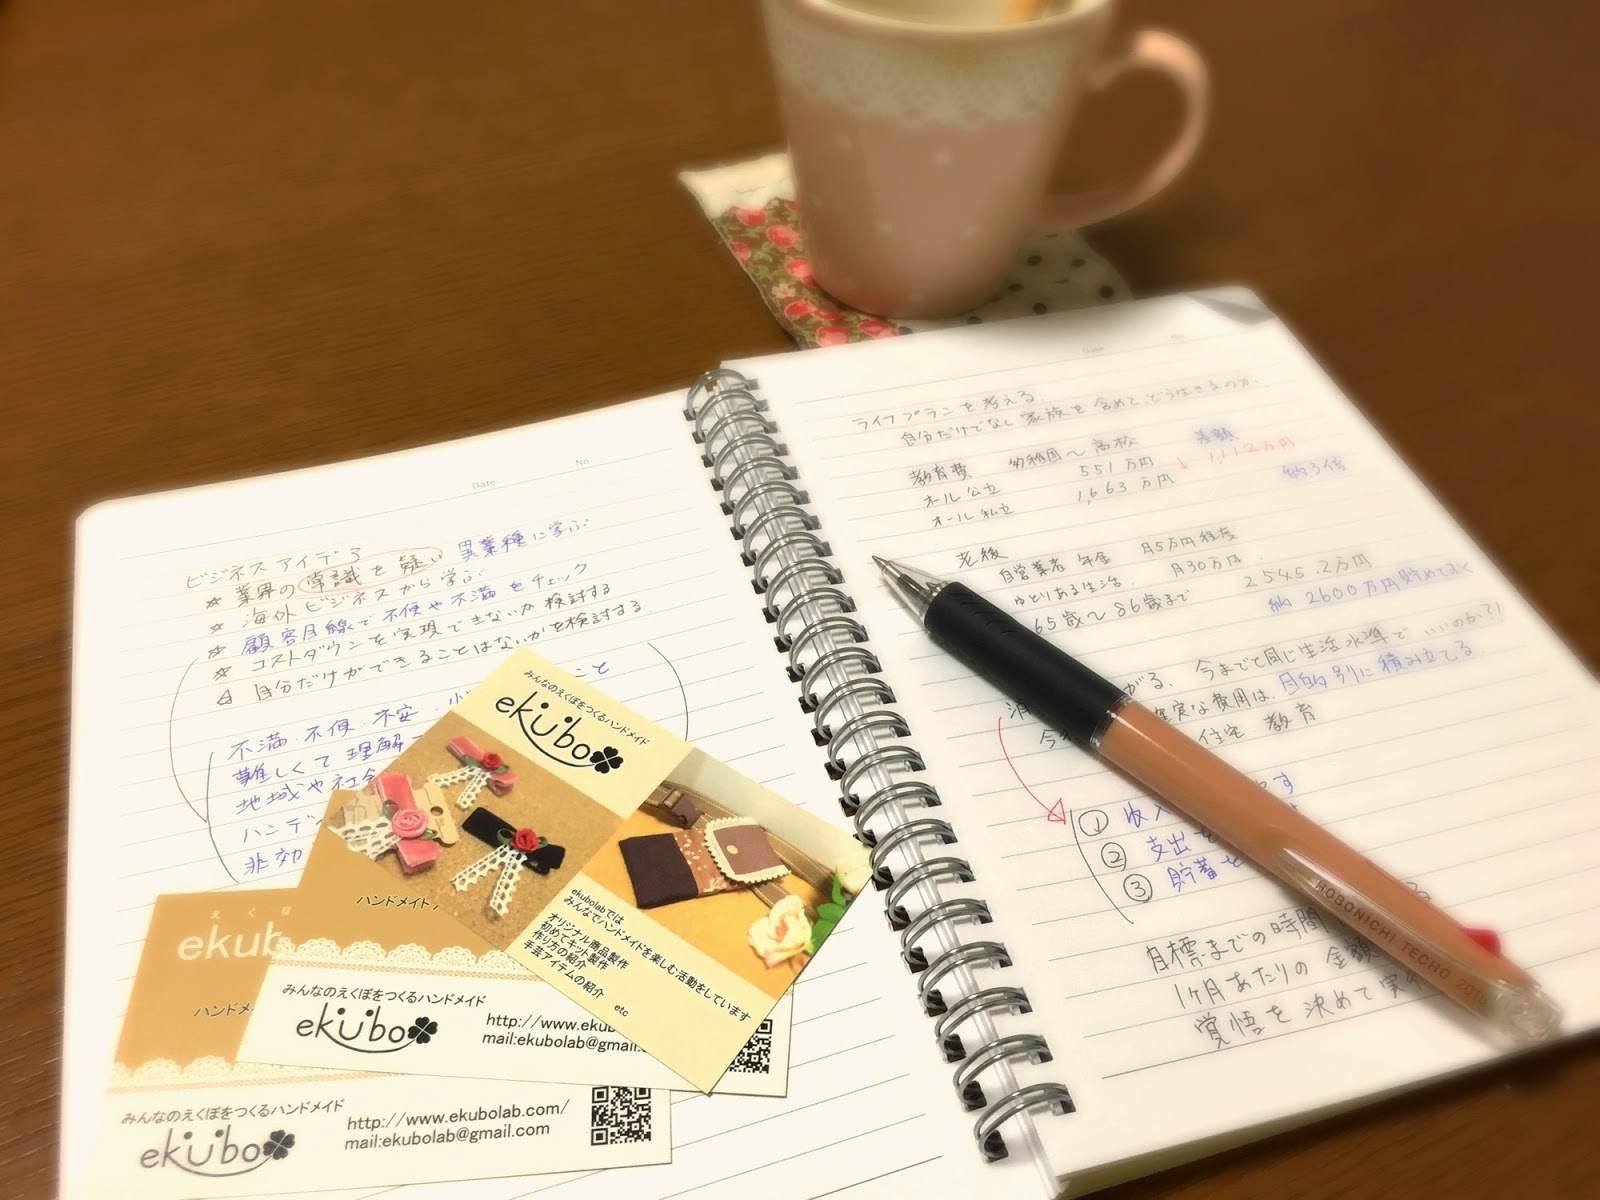 Date
No
ビジネスアイデア
☆ 業界の常識を疑い 異業種に学ぶ
☆ 海外ビジネスから学ぶ
☆ 顧客目線で不便や不満をチェック
☆ コストダウンを実現できないか検討する
☆ 自分だけができることはないかを検討する
こと
不満・不便・不安・
難しくて理解
地域や社会
ハンデ
非効
みんなのえくぼをつくるハンドメイド
ekubo
ハンドメイド
ekubolabでは
みんなでハンドメイドを楽しむ活動をしています
オリジナル商品製作
初めてキット製作
作り方の紹介
手芸アイテムの紹介
etc
えくぼ
ekub
ハンドメ
みんなのえくぼをつくるハンドメイド
ekubo
http://www.ekub
mail:ekubolab@gmail.c
みんなのえくぼをつくるハンドメイド
ekubo
http://www.ekubolab.com/
mail:ekubolab@gmail.com
Date
No
ライフプランを考える。
自分だけでなく家族を含めてどう生きるのか。
教育費 幼稚園〜高校 差額
オール公立 551万円 1,112万円
オール私立 1,663万円 約3倍
老後
自営業者 年金 月5万円程度
ゆとりある生活 月30万円
65歳〜86歳まで 2545.2万円
約2600万円貯めておく
がる、今までと同じ生活水準でいいのか?!
確実な費用は、目的別に積み立てる
住宅 教育
① 収入 す
② 支出を
③ 貯蓄を
目標までの時間
1ヶ月あたりの金額
覚悟を決めて実
HOBONICHI TECHO